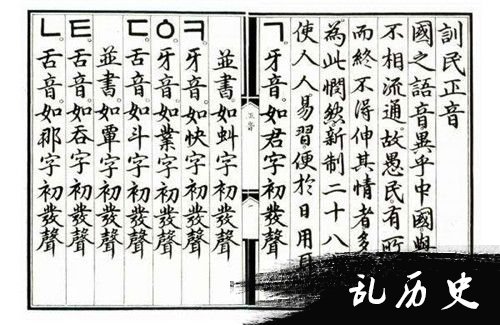 訓民正音
國之語音異乎中國與
不相流通。故愚民有所
而終不得伸其情者多
為此憫然新制二十八
使人人易習。便於日用耳
ㄱ。牙音。如君字初發聲
並書。如虯字初發聲
ㅋ。牙音。如快字初發聲
ㆁ。牙音。如業字初發聲
ㄷ。舌音。如斗字初發聲
並書。如覃字初發聲
ㅌ。舌音。如呑字初發聲
ㄴ。舌音。如那字初發聲
正音
乱历史